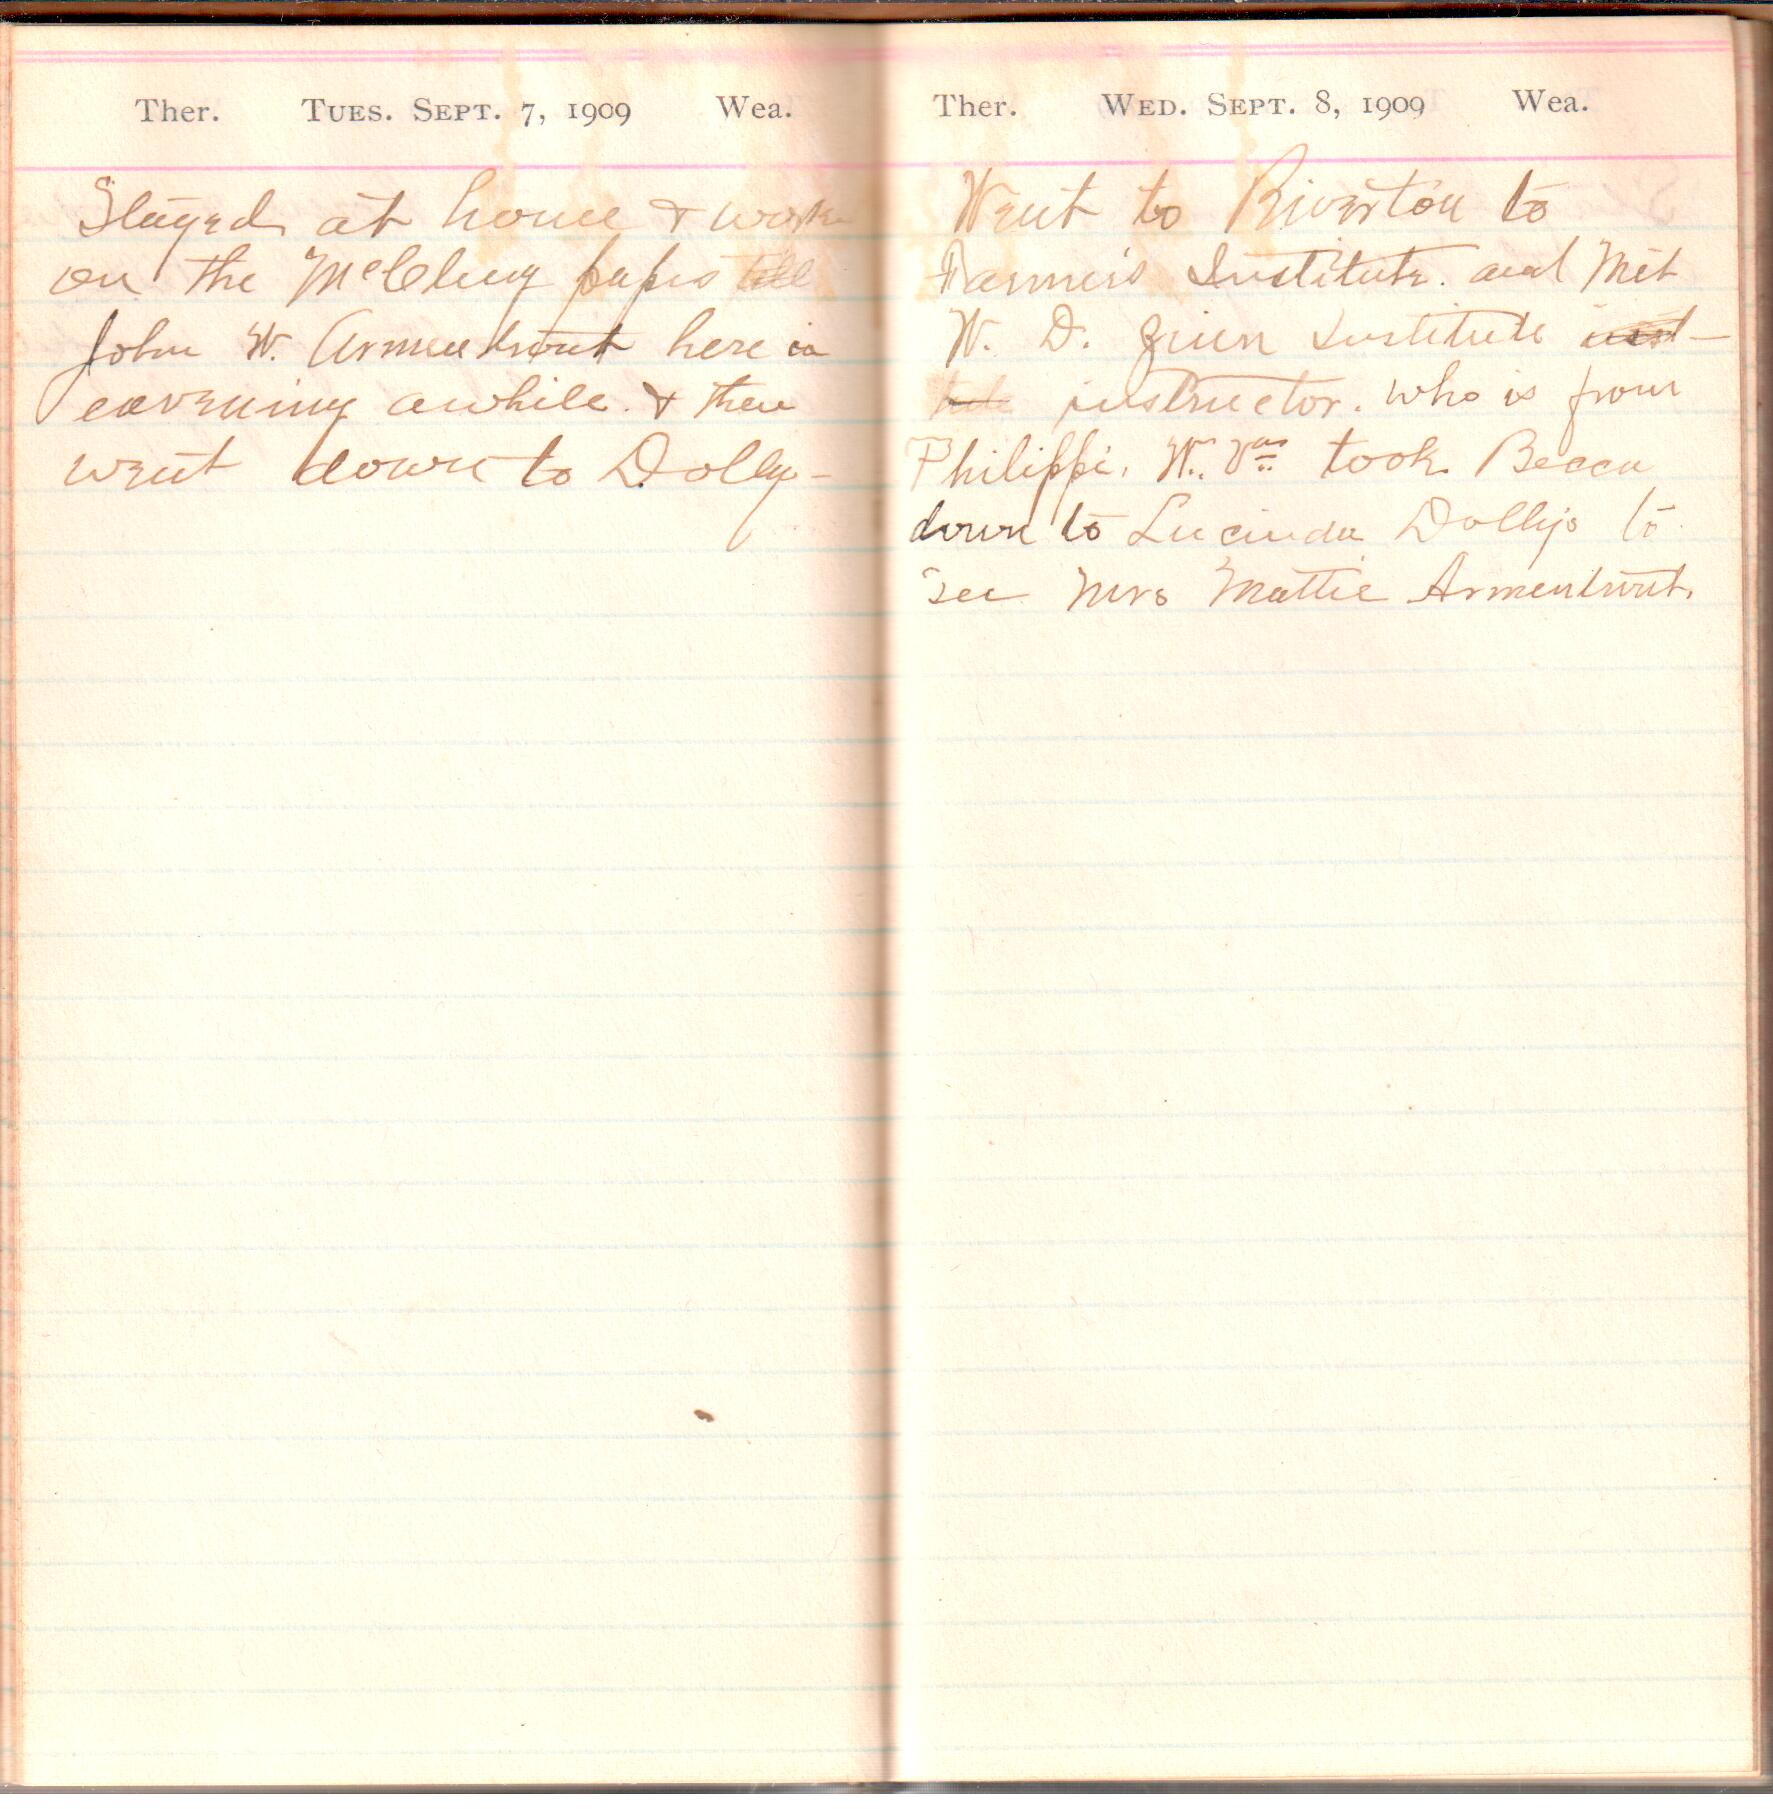 Ther. Tues. Sept. 7, 1909 Wea.
Stayed at home & work
on the McClung papers till
John W. Armentrout here in
eavening awhile. & then
went down to Dolly-
Ther. Wed. Sept. 8, 1909 Wea.
Went to Riverton to
Farmers Institute. and Met
W. D. Institute inst-
tute instructor. who is from
Philippi, W. Va. took Becca
down to Lucinda Dollys to
see Mrs Mattie Armentrout.